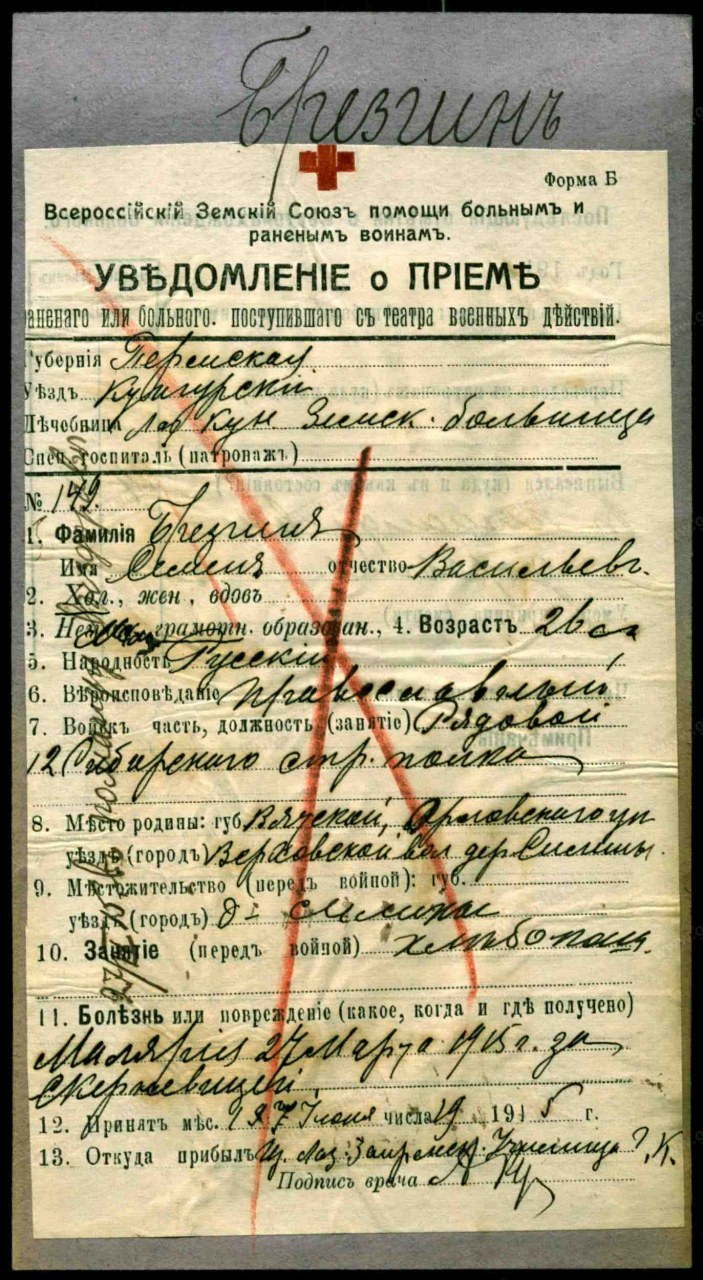 Брезгинъ
Форма Б
Всероссійскій Земскій Союзъ помощи больнымъ и
раненымъ воинамъ.
УВѢДОМЛЕНІЕ о ПРІЕМѢ
раненаго или больного. поступившаго съ театра военныхъ дѣйствій.
Губернія Пермская
Уѣздъ Кунгурскій
Лѣчебница Кун. Земск. больница
Спец. госпиталь (патронажъ)
№ 149.
1. Фамилія Брезгинъ
Имя Семенъ отчество Васильев.
2. Хол., жен, вдовъ
3. грамотн. образован., 4. Возрастъ 26
5. Народность Русскій
6. Вѣроисповѣданіе Православный
7. Войск часть, должность (занятіе) Рядовой
12 Сибирского стр. полка
8. Мѣсто родины: губ. Вятской, Орловского
уѣздъ (городъ) Верховской вол дер
9. Мѣстожительство (передъ войной): губ.
уѣздъ (городъ)
10. Занятіе (передъ войной) хлѣбопаш.
11. Болѣзнь или поврежденіе (какое, когда и гдѣ получено)
Малярія 27 Марта 1915 г. за
12. Принятъ мѣс. Іюня числа 19 1915 г.
13. Откуда прибылъ
Подпись врача